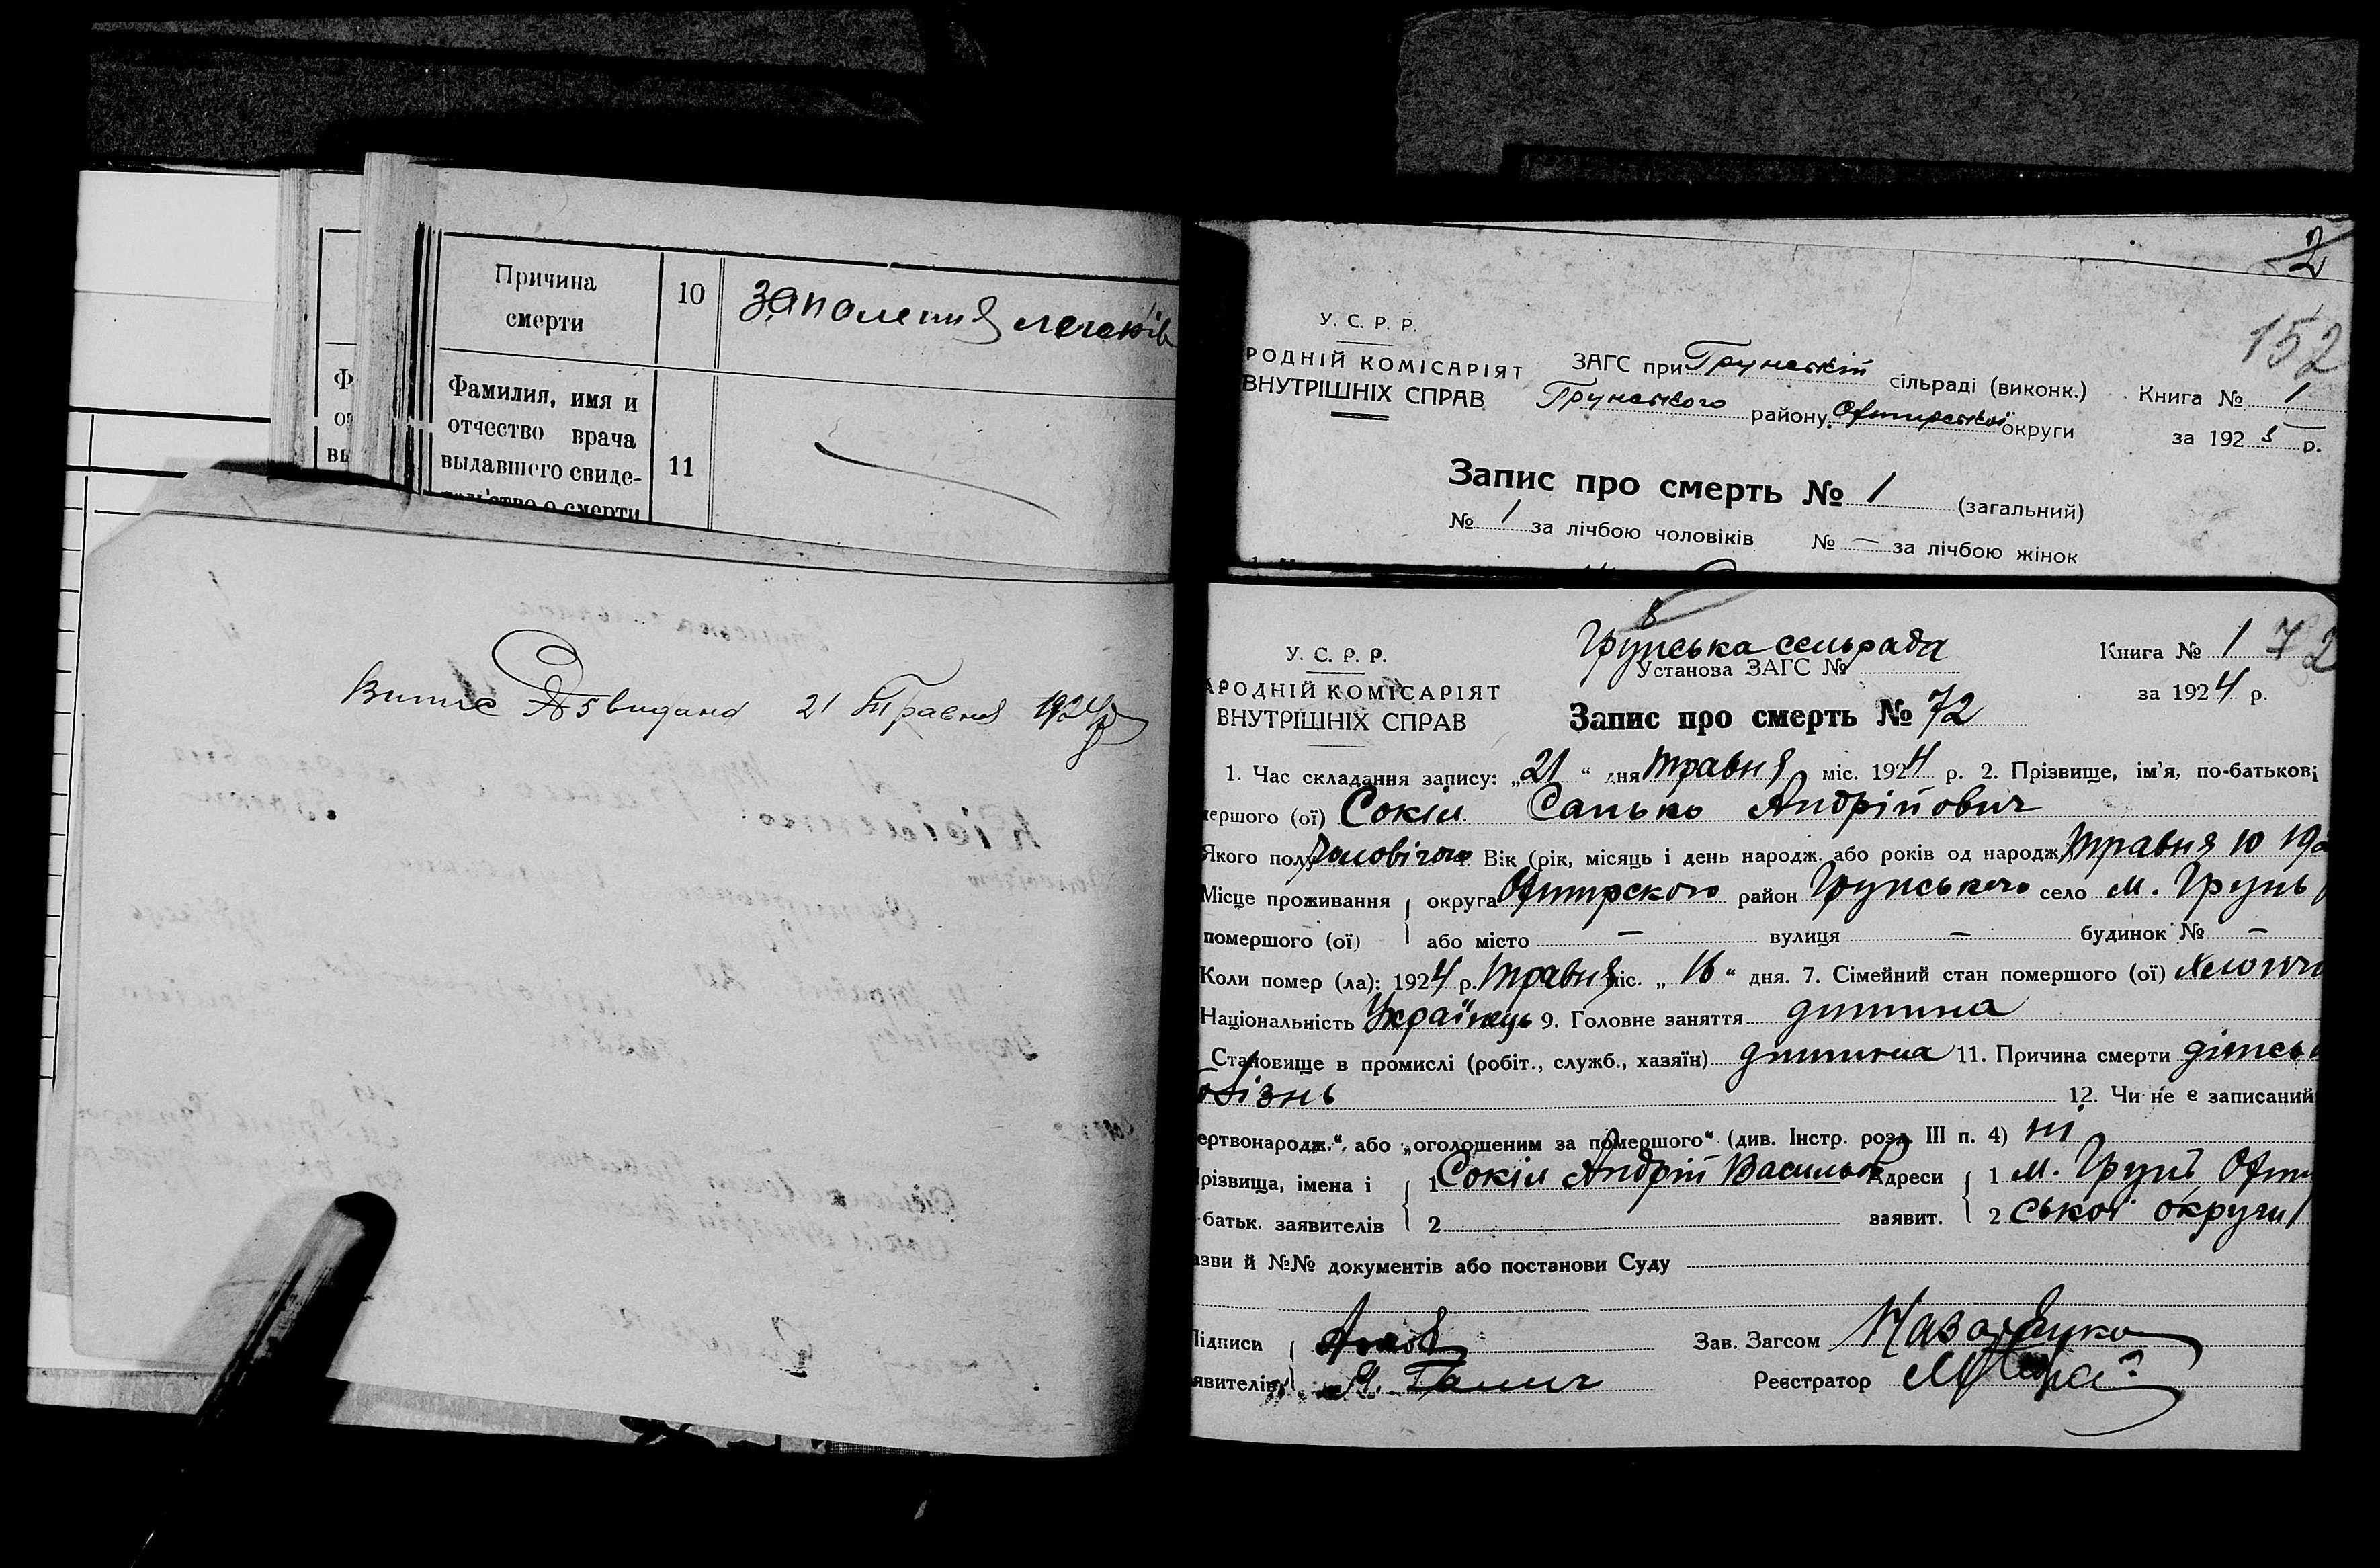 Причина
смерти
10
запаления легенів
Фамилия, имя и
отчество врача
выдавшего свиде-
тельство о смерти
11
Ф
от
вы
Витяг № 5 видано 21 Травня 1924 р
2
152
У. С. Р. Р.
РОДНІЙ КОМІСАРІЯТ
ВНУТРІШНІХ СПРАВ
ЗАГС при Грунській сільраді (виконк.)
Грунського району Охтирської округи
Книга № 1
за 192 5 р.
Запис про смерть № 1 (загальний)
№ 1 за лічбою чоловіків № — за лічбою жінок
У. С. Р. Р.
АРОДНІЙ КОМІСАРІЯТ
ВНУТРІШНІХ СПРАВ
Грунська сельрада
Установа ЗАГС №
Книга № 1 72
за 1924 р.
Запис про смерть № 72
1. Час складання запису: „21“ дня травня міс. 1924 р. 2. Прізвище, ім'я, по-батькові
мершого (ої) Сокіл Санько Андрійович
Якого полу Чоловічого Вік (рік, місяць і день народж. або років од народж Травня 10 192
Місце проживання округа Охтирского район Грунського село м. Грунь
помершого (ої) або місто — вулиця — будинок № —
Коли помер (ла): 1924 р. Травня міс. „16“ дня. 7. Сімейний стан помершого (ої)
Національність Українець 9. Головне заняття дитина
Становище в промислі (робіт., служб., хазяїн) дитина 11. Причина смерти дітська
болізнь 12. Чи не є записаний
ертвонародж.“, або „оголошеним за помершого“ (див. Інстр. розд. III п. 4) ні
різвища, імена і 1 Сокіл Андрій Васильов Адреси 1 м. Грунь Охтир
батьк. заявителів 2 заявит. 2 ської округи
азви й №№ документів або постанови Суду
Підписи Зав. Загсом Назаренко
явителів Я. Галич Реєстратор